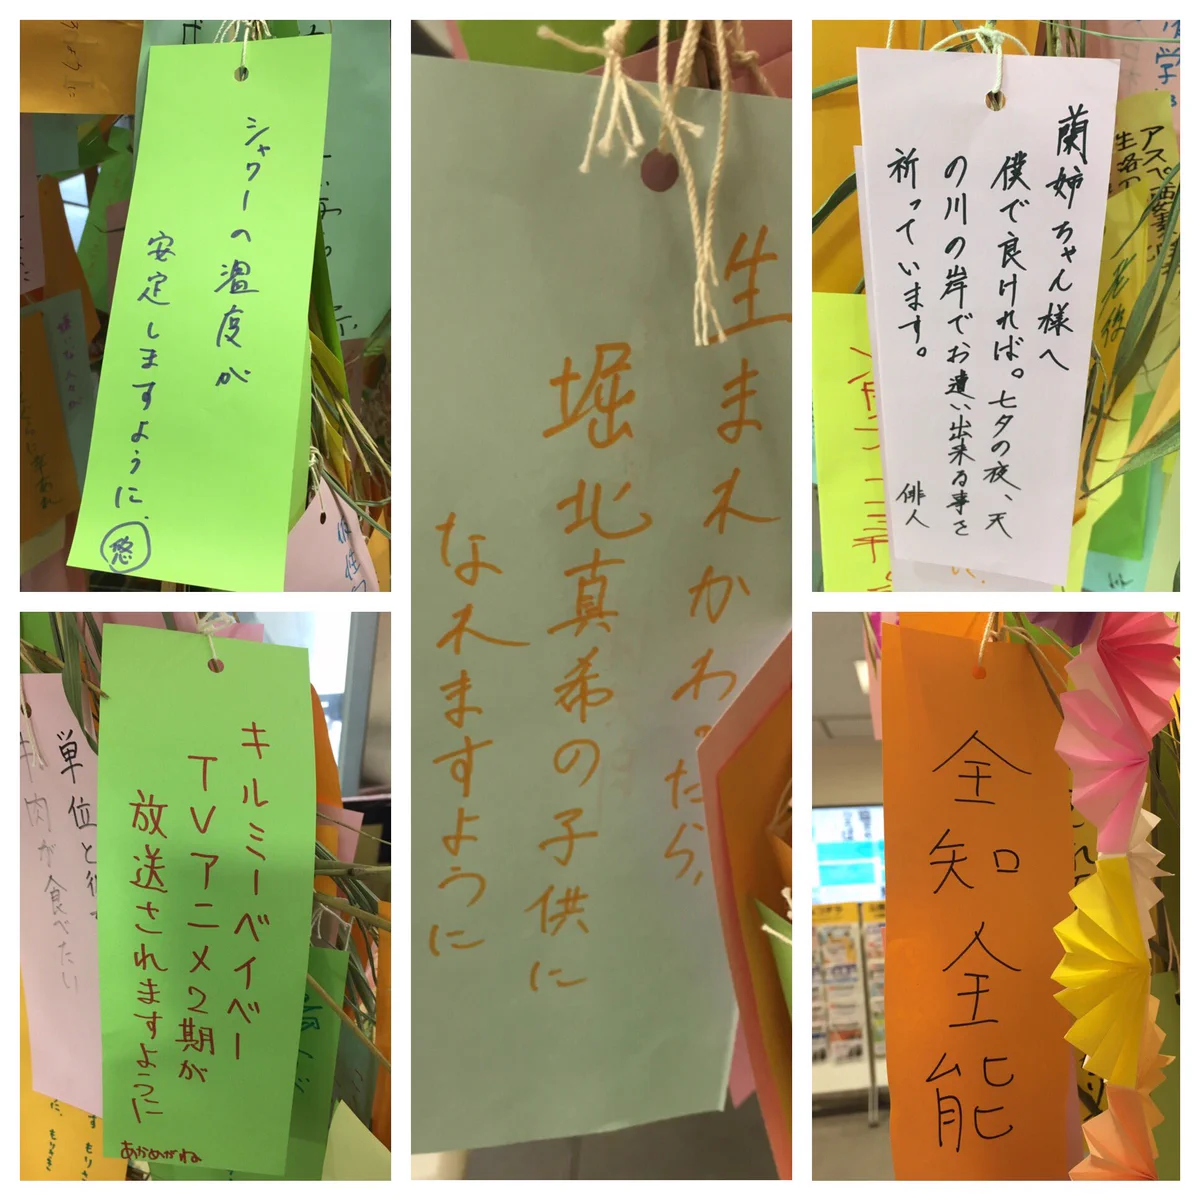 シャワーの温度が
安定しますように、
悠
生まれかわったら、
堀北真希の子供に
なれますように
蘭姉ちゃん様へ
僕で良ければ。七夕の夜、天
の川の岸でお遭い出来る事を
祈っています。
俳人
アスペ
生活の
老後
学
キルミーベイベー
TVアニメ2期が
放送されますように
あかめがね
単位と
牛肉が食べたい
もりさき
全知全能